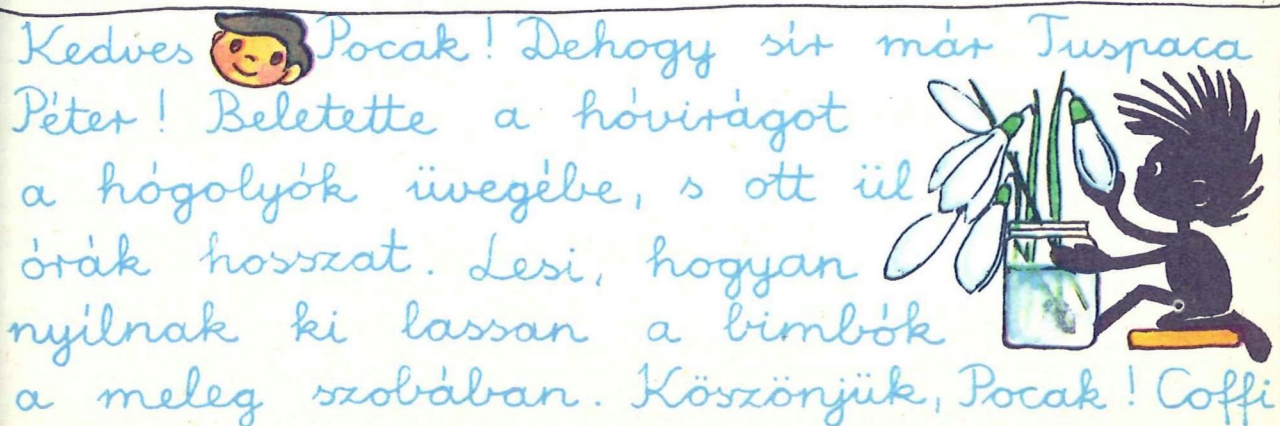 Kedves Pocak! Dehogy sír már Tuspaca
Péter! Beletette a hóvirágot
a hógolyók üvegébe, s ott ül
órák hosszat. Lesi, hogyan
nyílnak ki lassan a bimbók
a meleg szobában. Köszönjük, Pocak! Coffi